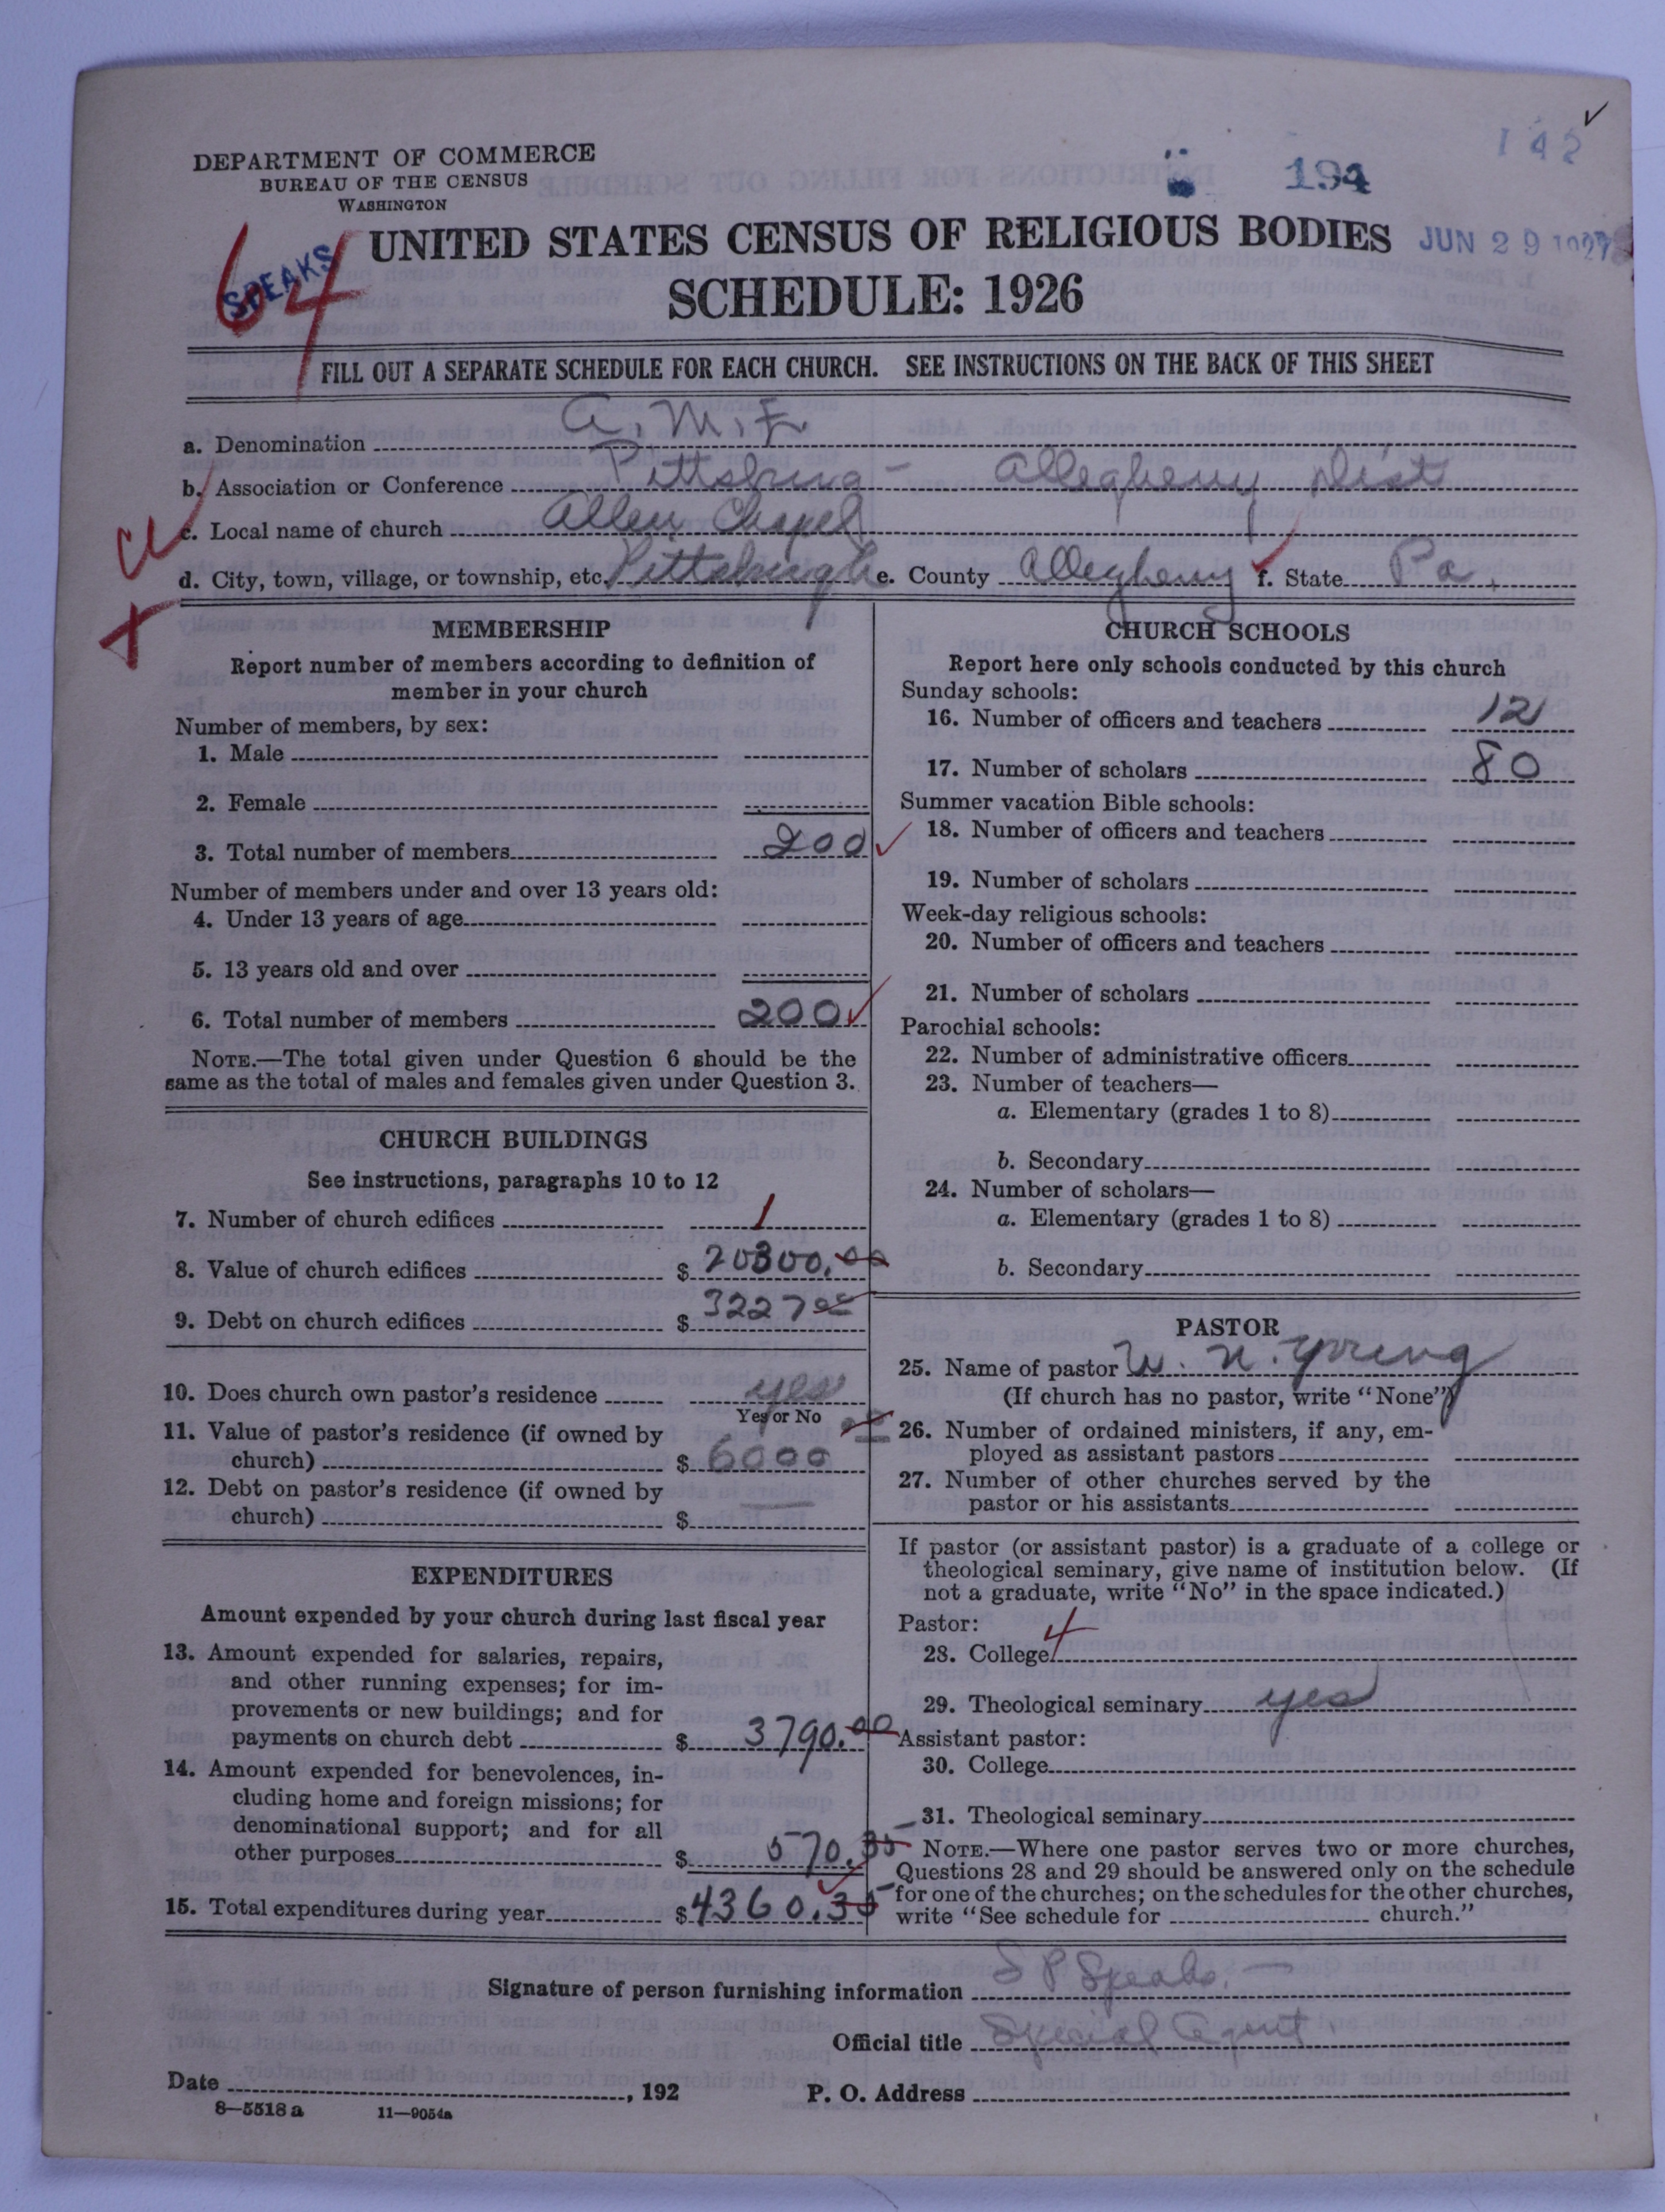 142
194
DEPARTMENT OF COMMERCE
BUREAU OF THE CENSUS
WASHINGTON
64
SPEAKS
UNITED STATES CENSUS OF RELIGIOUS BODIES
JUN 29 1927
SCHEDULE: 1926
FILL OUT A SEPARATE SCHEDULE FOR EACH CHURCH. SEE INSTRUCTIONS ON THE BACK OF THIS SHEET
a. Denomination A.M.E.
b. Association or Conference Pittsburg - Allegheny Dist
c. Local name of church Allen Chapel
d. City, town, village, or township, etc. Pittsburgh e. County Allegheny f. State Pa.
MEMBERSHIP
Report number of members according to definition of
member in your church
Number of members, by sex:
1. Male
2. Female
3. Total number of members 200
Number of members under and over 13 years old:
4. Under 13 years of age
5. 13 years old and over
6. Total number of members 200
NOTE.—The total given under Question 6 should be the
same as the total of males and females given under Question 3.
CHURCH BUILDINGS
See instructions, paragraphs 10 to 12
7. Number of church edifices 1
8. Value of church edifices $ 20300.00
9. Debt on church edifices $ 3227 00
10. Does church own pastor's residence yes
Yes or No
11. Value of pastor's residence (if owned by
church) $ 6000 00
12. Debt on pastor's residence (if owned by
church) $ —
EXPENDITURES
Amount expended by your church during last fiscal year
13. Amount expended for salaries, repairs,
and other running expenses; for im-
provements or new buildings; and for
payments on church debt $ 3790.00
14. Amount expended for benevolences, in-
cluding home and foreign missions; for
denominational support; and for all
other purposes $ 570.35
15. Total expenditures during year $ 4360.35
CHURCH SCHOOLS
Report here only schools conducted by this church
Sunday schools:
16. Number of officers and teachers 12
17. Number of scholars 80
Summer vacation Bible schools:
18. Number of officers and teachers
19. Number of scholars
Week-day religious schools:
20. Number of officers and teachers
21. Number of scholars
Parochial schools:
22. Number of administrative officers
23. Number of teachers—
a. Elementary (grades 1 to 8)
b. Secondary
24. Number of scholars—
a. Elementary (grades 1 to 8)
b. Secondary
PASTOR
25. Name of pastor W. N. Young
(If church has no pastor, write "None")
26. Number of ordained ministers, if any, em-
ployed as assistant pastors
27. Number of other churches served by the
pastor or his assistants
If pastor (or assistant pastor) is a graduate of a college or
theological seminary, give name of institution below. (If
not a graduate, write "No" in the space indicated.)
Pastor:
28. College 4
29. Theological seminary yes
Assistant pastor:
30. College
31. Theological seminary
NOTE.—Where one pastor serves two or more churches,
Questions 28 and 29 should be answered only on the schedule
for one of the churches; on the schedules for the other churches,
write "See schedule for church."
Signature of person furnishing information S P Speaks.
Official title Special Agent.
Date , 192
P. O. Address
8—5518 a 11—9054a